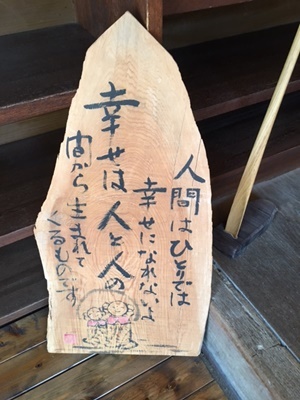 人間はひとりでは
幸せになれないよ
幸せは人と人の
間から生まれて
くるものです